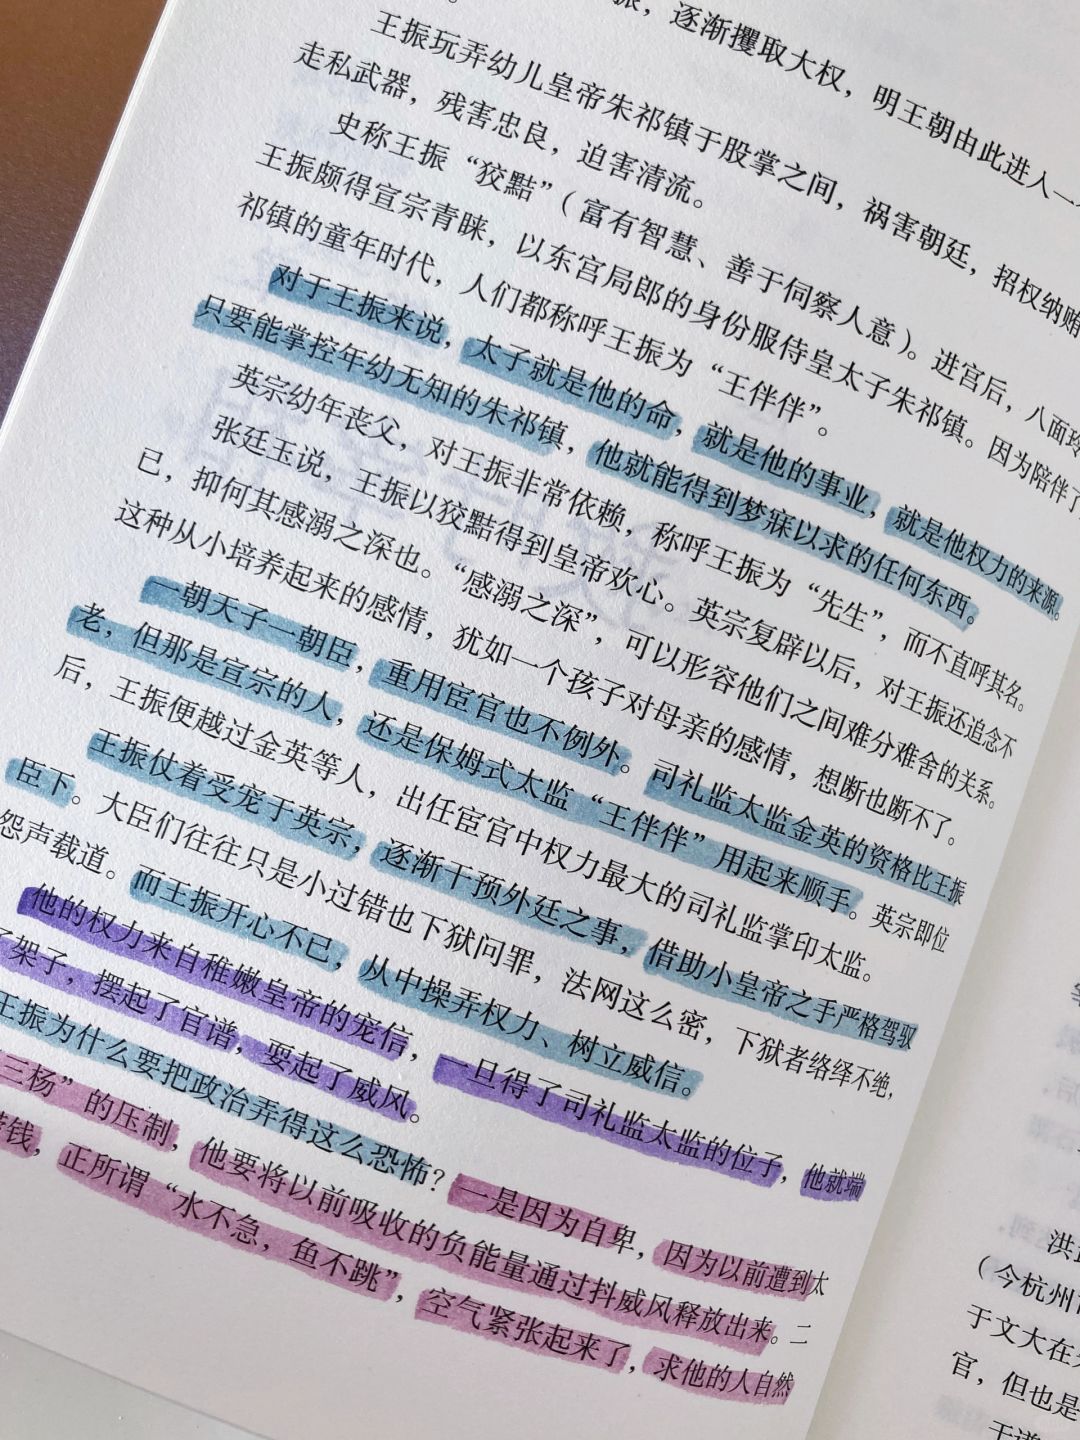 振，逐渐攫取大权，明王朝由此进入一
王振玩弄幼儿皇帝朱祁镇于股掌之间，祸害朝廷，招权纳贿
走私武器，残害忠良，迫害清流。
史称王振“狡黠”（富有智慧、善于伺察人意）。进宫后，八面玲
王振颇得宣宗青睐，以东宫局郎的身份服侍皇太子朱祁镇。因为陪伴了
祁镇的童年时代，人们都称呼王振为“王伴伴”。
对于王振来说，太子就是他的命，就是他的事业，就是他权力的来源。
只要能掌控年幼无知的朱祁镇，他就能得到梦寐以求的任何东西。
英宗幼年丧父，对王振非常依赖，称呼王振为“先生”，而不直呼其名。
张廷玉说，王振以狡黠得到皇帝欢心。英宗复辟以后，对王振还追念不
已，抑何其感溺之深也。“感溺之深”，可以形容他们之间难分难舍的关系。
这种从小培养起来的感情，犹如一个孩子对母亲的感情，想断也断不了。
一朝天子一朝臣，重用宦官也不例外。司礼监太监金英的资格比王振
老，但那是宣宗的人，还是保姆式太监“王伴伴”用起来顺手。英宗即位
后，王振便越过金英等人，出任宦官中权力最大的司礼监掌印太监。
王振仗着受宠于英宗，逐渐干预外廷之事，借助小皇帝之手严格驾驭
臣下。大臣们往往只是小过错也下狱问罪，法网这么密，下狱者络绎不绝，
怨声载道。而王振开心不已，从中操弄权力、树立威信。
他的权力来自稚嫩皇帝的宠信，一旦得了司礼监太监的位子，他就端
了架子，摆起了官谱，耍起了威风。
王振为什么要把政治弄得这么恐怖？一是因为自卑，因为以前遭到太
三杨”的压制，他要将以前吸收的负能量通过抖威风释放出来。二
钱，正所谓“水不急，鱼不跳”，空气紧张起来了，求他的人自然
洪
（今杭州
于文大在
官，但也是
于谦